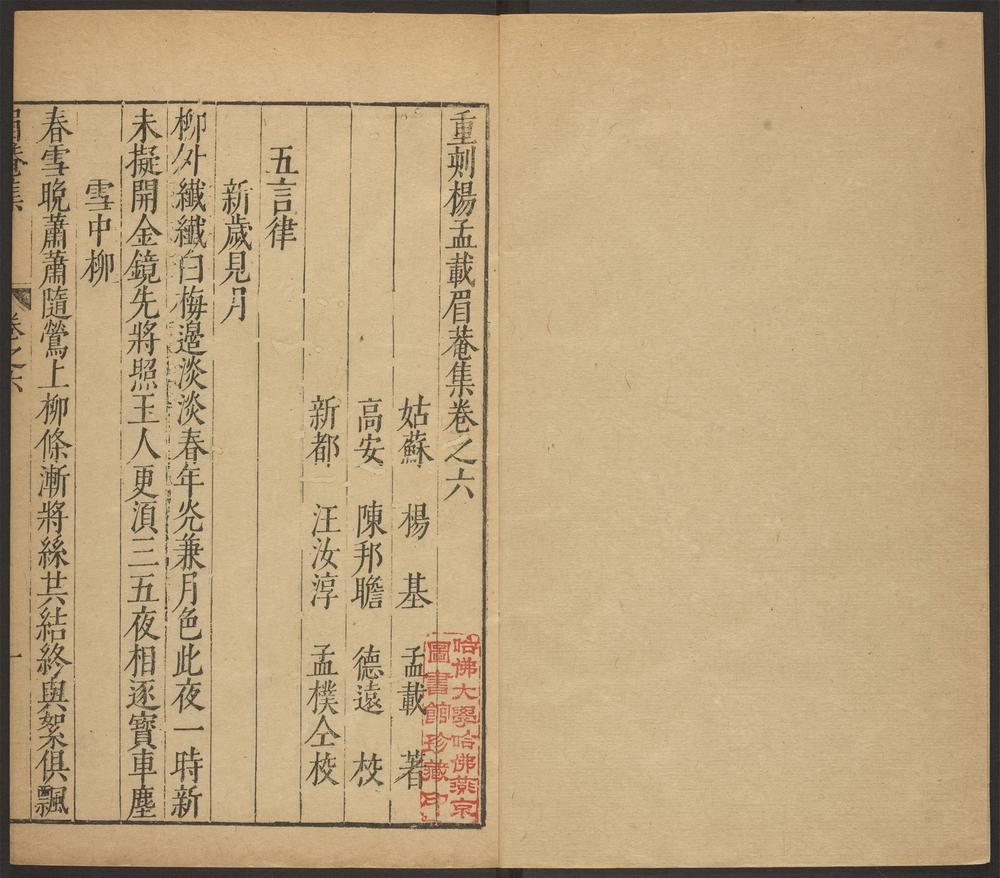 重刻楊孟載眉菴集卷之六
姑蘇 楊 基 孟載 著
高安 陳邦瞻 德遠 校
新都 汪汝淳 孟樸仝校
五言律
新歲見月
柳外纖纖白梅邉淡淡春年光兼月色此夜一時新
未擬開金鏡先將照玉人更湏三五夜相逐寶車塵
雪中柳
春雪晚蕭蕭隨鶯上柳條漸將絲共結終與絮俱飄
眉菴集 卷之六 一
哈佛大學哈佛燕京
圖書館珍藏印